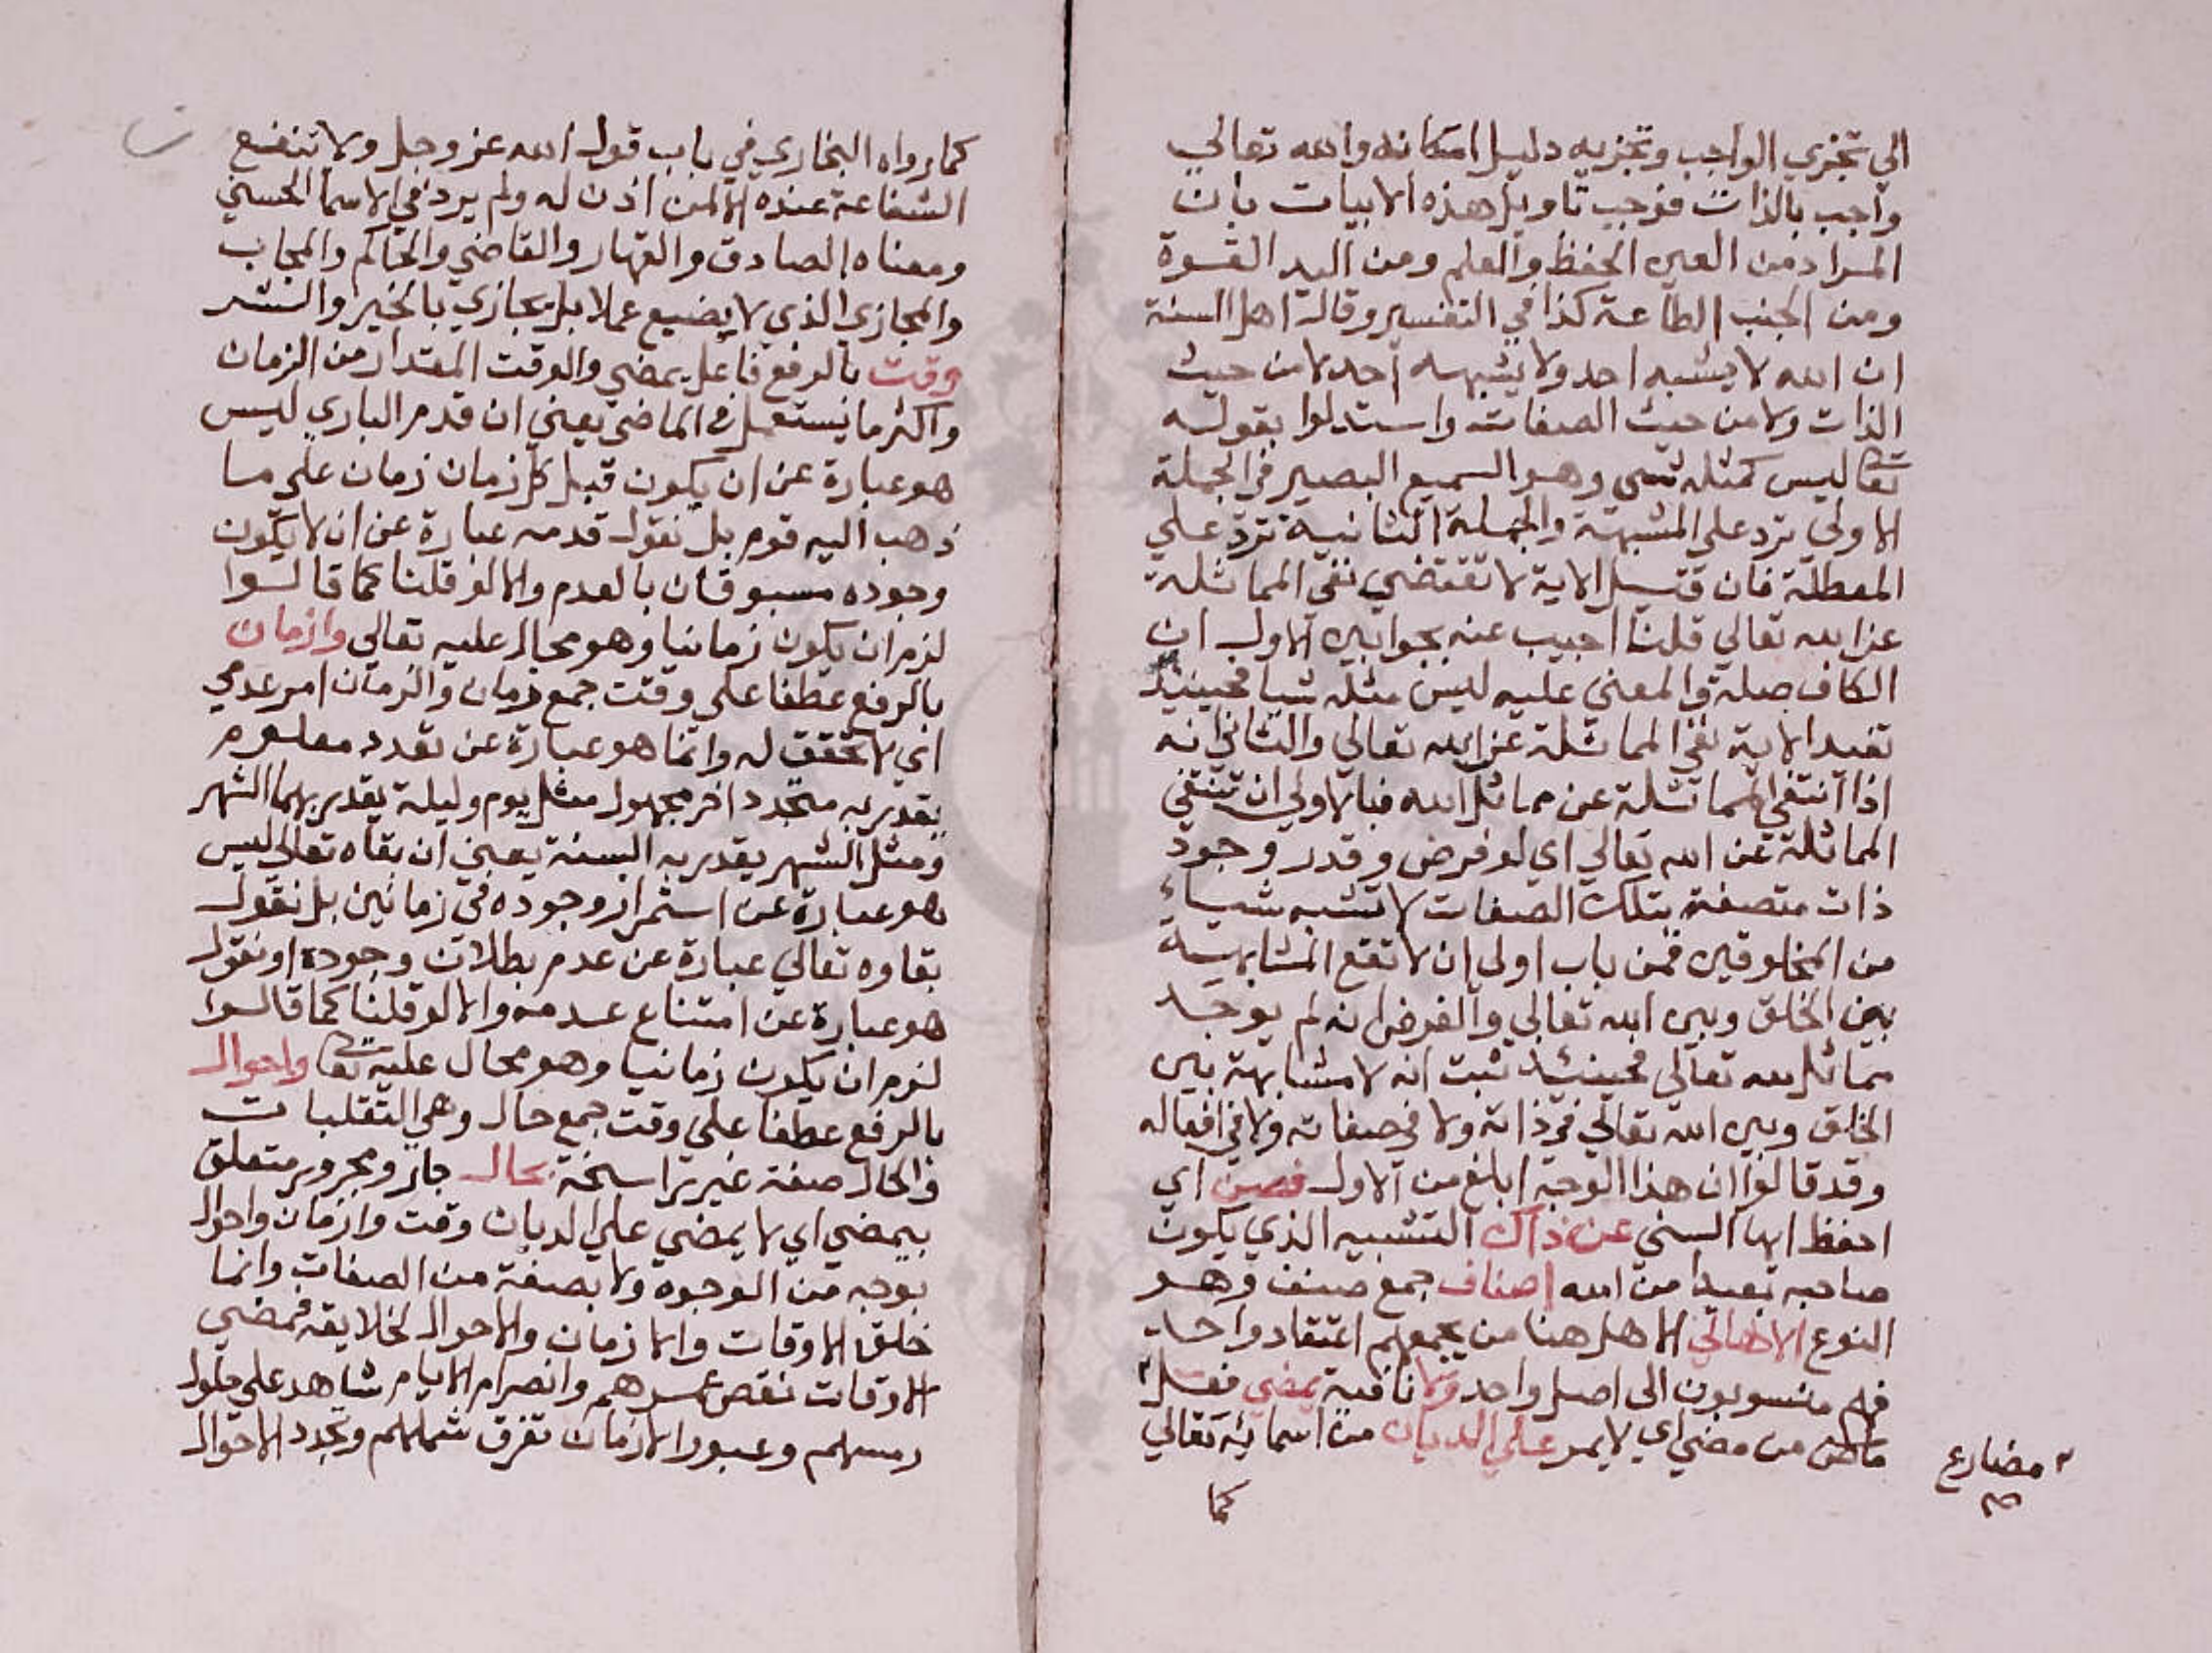 الي تجزي الواجب وتجزيه دليل امكانه والله تعالي
واجب بالذات فوجب تاويل هذه الابيات بان
المراد من العين الحفظ والعلم ومن اليد القوة
ومن الجنب الطاعة كذا في التفسير وقالـ اهل السنة
ان الله لا يشبه احد ولا يشبهه احد لا من حيث
الذات ولا من حيث الصفات واستدلوا بقوله
تعا ليس كمثله شي وهو السميع البصير في الجملة
الاولي ترد علي المشبهة والجملة الثانية ترد علي
المعطلة فان قيل الاية لا تقتضي نفي المماثلة
عن الله تعالي قلنا اجيب عنه بجوابين الاول ان
الكاف صلة والمعني عليه ليس مثله شيا فحينيذ
تفيد الاية نفي المماثلة عن الله تعالي والثاني انه
اذا انتفي المماثلة عن مماثل الله فبالاولي ان تنتفي
المماثلة عن الله تعالي اي لو فرض وقدر وجود
ذات متصفة بتلك الصفات لا تشبه شياء
من المخلوقين فمن باب اولي ان لا تقع المشابهة
بين الخلق وبين الله تعالي والفرض انه لم يوجد
مماثل لله تعالي فحينئذ ثبت انه لا مشابهة بين
الخلق وبين الله تعالي في ذاته ولا في صفاته ولا في افعاله
وقد قالوا ان هذا الوجه ابلغ من الاول فصن اي
احفظ ايها السني عن ذاك التشبيه الذي يكون
صاحبه بعيدا من الله اصناف جمع صنف وهو
النوع الاهالي الاهل هنا من يجمعهم اعتقاد واحد
فهم منسوبون الي اصل واحد ولا نافية يمضي فعل
ماض من مضي اي لا يمر علي الديان من اسمائه تعالي
مضارع
صح
كما
كما رواه البخاري في باب قول الله عز وجل ولا تنفع
الشفاعة عنده الا لمن اذن له ولم يرد في الاسما الحسني
ومعناه الصادق والقهار والقاضي والحاكم والمجاب
والمجازي الذي لا يضيع عملا بل يجازي بالخير والشر
وقت بالرفع فاعل يمضي والوقت المقدار من الزمان
واكثر ما يستعمل في الماضي يعني ان قدم الباري ليس
هو عبارة عن ان يكون قبل كل زمان زمان علي ما
ذهب اليه قوم بل نقول قدمه عبارة عن ان لا يكون
وجوده مسبوقان بالعدم والا لو قلنا كما قالوا
لزم ان يكون زمانيا وهو محال عليه تعالي وازمان
بالرفع عطفا علي وقت جمع زمان والزمان امر عدمي
اي لا تحقق له وانما هو عبارة عن تعدد معلوم
يقدر به متجدد اخر مجهول مثل يوم وليلة يقدر بهما الشهر
ومثل الشهر يقدر به السنة يعني ان بقاه تعالي ليس
هو عبارة عن استمرار وجوده في زمانين بل نقول
بقاوه تعالي عبارة عن عدم بطلان وجوده او نقول
هو عبارة عن امتناع عدمه والا لو قلنا كما قالوا
لزم ان يكون زمانيا وهو محال عليه تعا واحوال
بالرفع عطفا علي وقت جمع حال وهي التقلبات
والحال صفة غير راسخة بحال جار ومجرور متعلق
بيمضي اي لا يمضي علي الديان وقت وازمان واحوال
بوجه من الوجوه ولا بصفة من الصفات وانما
خلق الاوقات والازمان والاحوال لخلايقه فمضي
الاوقات نقص عمرهم وانصرام الايام شاهد علي حلول
رمسهم وعبور الازمان تفرق شملهم وتجدد الاحوال